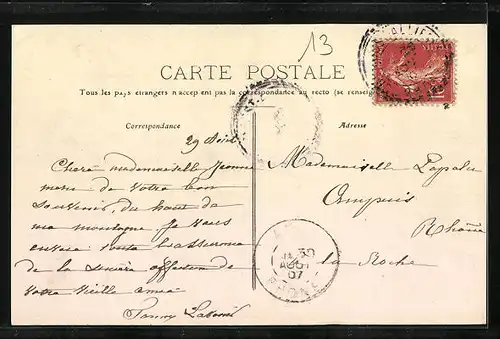 13
CARTE POSTALE
Tous les pays étrangers n'acceptent pas la correspondance au recto (se renseign
Correspondance
Adresse
29 Août
Chère mademoiselle Jeanne
de votre bon
souvenir, du haut de
ma montagne je vous
envoie toute l'assurance
de la sincère affection de
votre vieille amie
Fanny
Mademoiselle
Ampuis
Rhône
la Roche
30
AOUT
07
RHONE